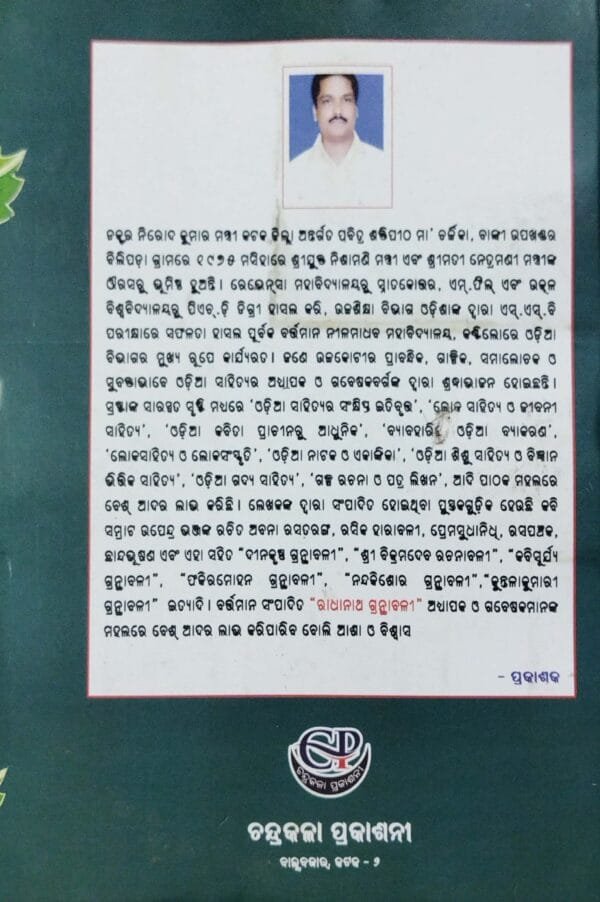 ଡକ୍ଟର ନିରୋଦ କୁମାର ମନ୍ତ୍ରୀ କଟକ ଜିଲ୍ଲା ଅନ୍ତର୍ଗତ ପବିତ୍ର ଶକ୍ତିପୀଠ ମା' ଚର୍ଚ୍ଚିକା, ବାଙ୍କୀ ଉପଖଣ୍ଡର
ବିଲିପଡ଼ା ଗ୍ରାମରେ ୧୯୭୫ ମସିହାରେ ଶ୍ରୀଯୁକ୍ତ ନିଶାମଣି ମନ୍ତ୍ରୀ ଏବଂ ଶ୍ରୀମତୀ ନେତ୍ରମଣୀ ମନ୍ତ୍ରୀଙ୍କ
ଔରସରୁ ଭୂମିଷ୍ଠ ହୁଅନ୍ତି। ରେଭେନ୍ସା ମହାବିଦ୍ୟାଳୟରୁ ସ୍ନାତକୋତ୍ତର, ଏମ୍.ଫିଲ୍ ଏବଂ ଉତ୍କଳ
ବିଶ୍ୱବିଦ୍ୟାଳୟରୁ ପିଏଚ୍.ଡ଼ି ଡିଗ୍ରୀ ହାସଲ କରି, ଉଚ୍ଚଶିକ୍ଷା ବିଭାଗ ଓଡ଼ିଶାଙ୍କ ଦ୍ୱାରା ଏସ୍.ଏସ୍.ବି
ପରୀକ୍ଷାରେ ସଫଳତା ହାସଲ ପୂର୍ବକ ବର୍ତ୍ତମାନ ନୀଳମାଧବ ମହାବିଦ୍ୟାଳୟ, କଣ୍ଟିଲୋରେ ଓଡ଼ିଆ
ବିଭାଗର ମୁଖ୍ୟ ରୂପେ କାର୍ଯ୍ୟରତ। ଜଣେ ଉଚ୍ଚକୋଟୀର ପ୍ରାବନ୍ଧିକ, ଗାଳ୍ପିକ, ସମାଲୋଚକ ଓ
ସୁବକ୍ତାଭାବେ ଓଡ଼ିଆ ସାହିତ୍ୟର ଅଧ୍ୟାପକ ଓ ଗବେଷକବର୍ଗଙ୍କ ଦ୍ୱାରା ଶ୍ରଦ୍ଧାଭାଜନ ହୋଇଛନ୍ତି।
ସ୍ରଷ୍ଟାଙ୍କ ସାରସ୍ୱତ ସୃଷ୍ଟି ମଧ୍ୟରେ 'ଓଡ଼ିଆ ସାହିତ୍ୟର ସଂକ୍ଷିପ୍ତ ଇତିବୃତ୍ତ', 'ଲୋକ ସାହିତ୍ୟ ଓ ଜୀବନୀ
ସାହିତ୍ୟ', 'ଓଡ଼ିଆ କବିତା ପ୍ରାଚୀନରୁ ଆଧୁନିକ', 'ବ୍ୟାବହାରିକ ଓଡ଼ିଆ ବ୍ୟାକରଣ',
'ଲୋକସାହିତ୍ୟ ଓ ଲୋକସଂସ୍କୃତି', 'ଓଡ଼ିଆ ନାଟକ ଓ ଏକାଙ୍କିକା', 'ଓଡ଼ିଆ ଶିଶୁ ସାହିତ୍ୟ ଓ ବିଜ୍ଞାନ
ଭିତ୍ତିକ ସାହିତ୍ୟ', 'ଓଡ଼ିଆ ଗଦ୍ୟ ସାହିତ୍ୟ', 'ଗଳ୍ପ ରଚନା ଓ ପତ୍ର ଲିଖନ', ଆଦି ପାଠକ ମହଲରେ
ବେଶ୍ ଆଦର ଲାଭ କରିଛି। ଲେଖକଙ୍କ ଦ୍ୱାରା ସଂପାଦିତ ହୋଇଥିବା ପୁସ୍ତକଗୁଡ଼ିକ ହେଉଛି କବି
ସମ୍ରାଟ ଉପେନ୍ଦ୍ର ଭଞ୍ଜଙ୍କ ରଚିତ ଅବନା ରସତରଙ୍ଗ, ରସିକ ହାରାବଳୀ, ପ୍ରେମସୁଧାନିଧି, ରସପଞ୍ଚକ,
ଛାନ୍ଦଭୂଷଣ ଏବଂ ଏହା ସହିତ "ଦୀନକୃଷ୍ଣ ଗ୍ରନ୍ଥାବଳୀ", "ଶ୍ରୀ ବିକ୍ରମଦେବ ରଚନାବଳୀ", "କବିସୂର୍ଯ୍ୟ
ଗ୍ରନ୍ଥାବଳୀ", "ଫକିରମୋହନ ଗ୍ରନ୍ଥାବଳୀ", "ନନ୍ଦକିଶୋର ଗ୍ରନ୍ଥାବଳୀ","କୁନ୍ତଳାକୁମାରୀ
ଗ୍ରନ୍ଥାବଳୀ" ଇତ୍ୟାଦି। ବର୍ତ୍ତମାନ ସଂପାଦିତ "ରାଧାନାଥ ଗ୍ରନ୍ଥାବଳୀ" ଅଧ୍ୟାପକ ଓ ଗବେଷକମାନଙ୍କ
ମହଲରେ ବେଶ୍ ଆଦର ଲାଭ କରିପାରିବ ବୋଲି ଆଶା ଓ ବିଶ୍ୱାସ
- ପ୍ରକାଶକ
CP
ଚନ୍ଦ୍ରକଳା ପ୍ରକାଶନୀ
ଚନ୍ଦ୍ରକଳା ପ୍ରକାଶନୀ
ବାଲୁବଜାର, କଟକ - ୨